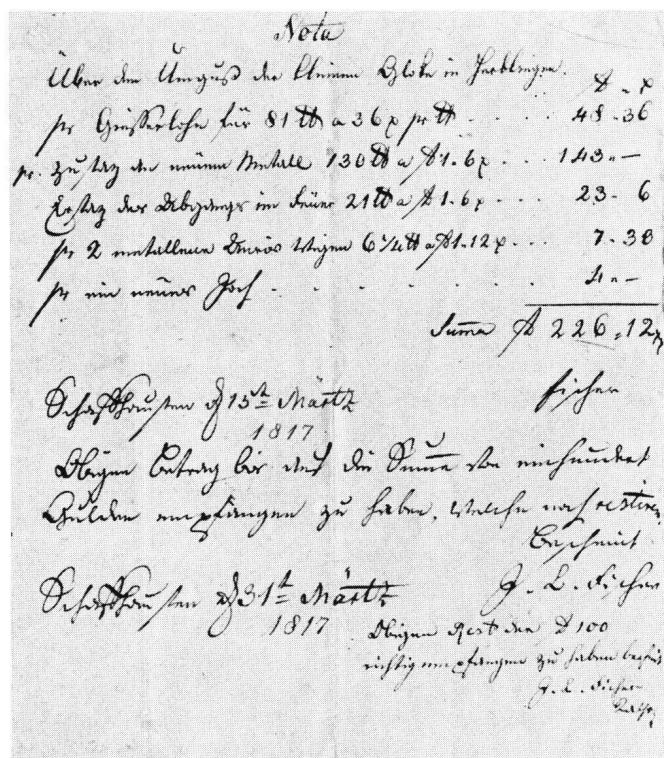 Nota
Über den Umguß der kleinen Gloke in Herblingen.
fl - x
pr Giesserlohn für 81 ℔ a 36 x pr ℔ - - - - - 48 - 36
pr. Zusaz an neuem Metall 130 ℔ a fl 1 - 6 x - - - 143 - -
Ersaz des Abgangs im Feuer 21 ℔ a fl 1 - 6 x - - - 23 - 6
pr 2 metallene 6 1/4 ℔ a fl 1 - 12 x - - - 7 - 38
pr ein neues Joch - - - - - - - - 4 - -
Summa fl 226 - 12 x
Schaffhausen d 15t Märtz Fischer
1817
Obigen Betrag bis auf die Summe von einhundert
Gulden empfangen zu haben, welche noch restiren
bescheint
Schaffhausen d 31t Märtz J. C. Fischer
1817
Obigen Rest der fl 100
richtig empfangen zu haben
J. C. Fischer